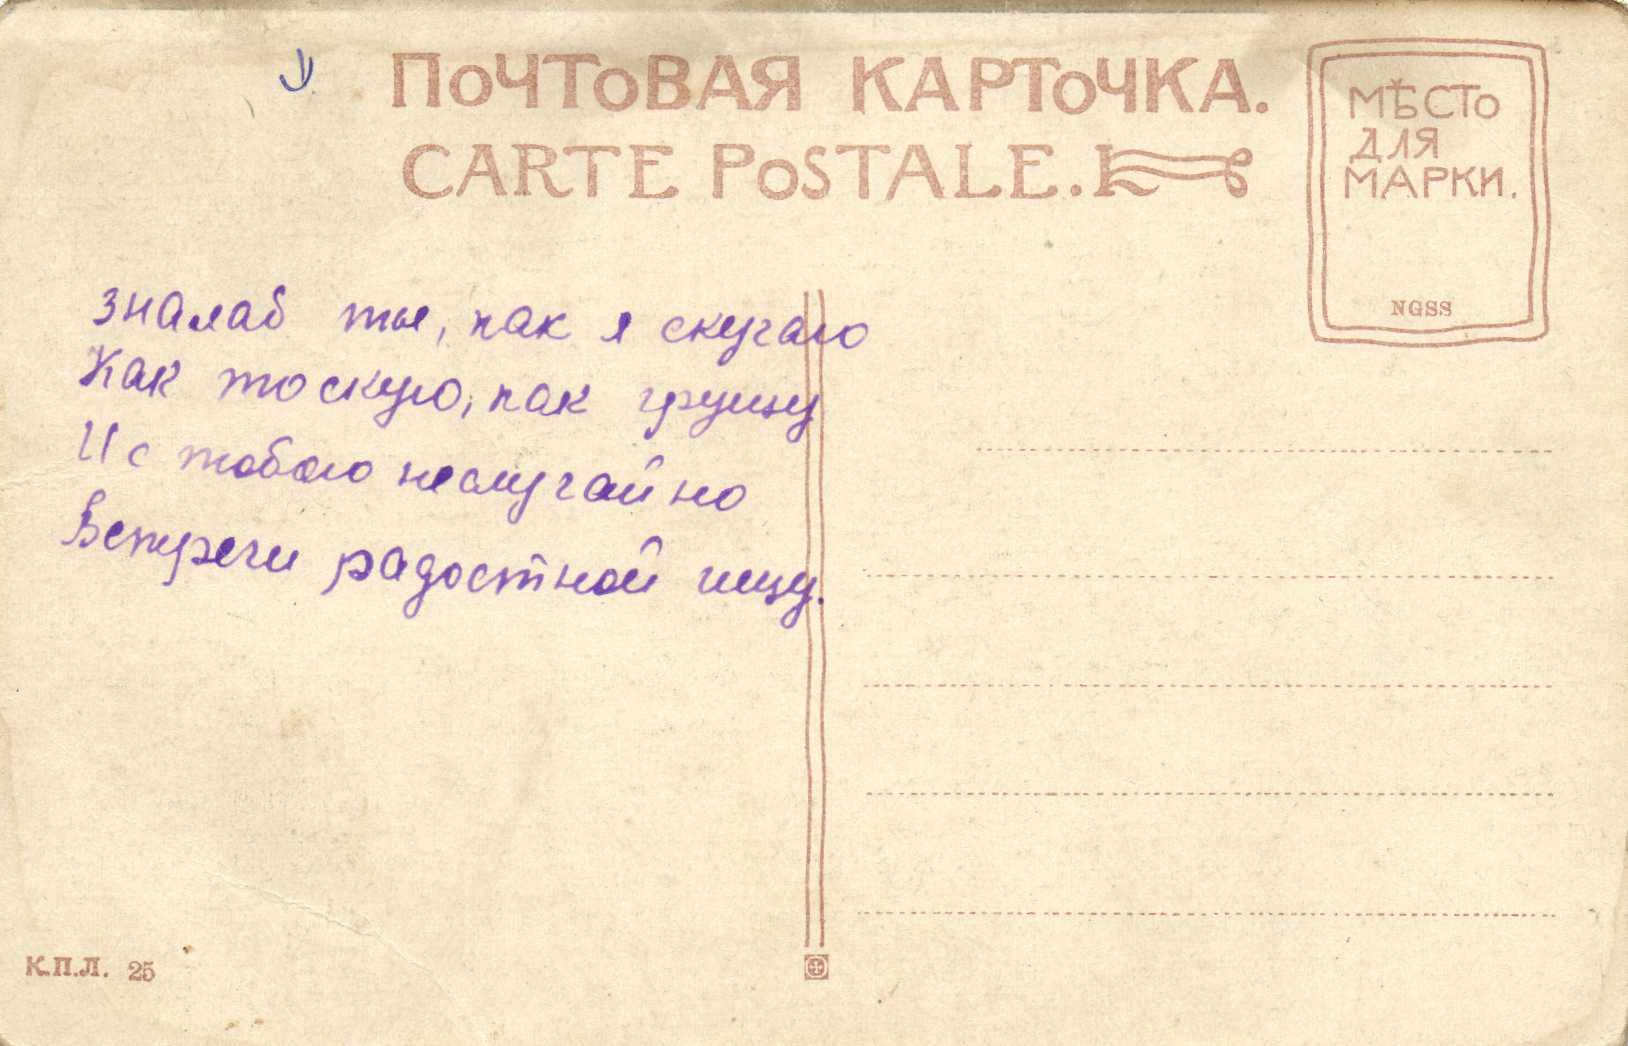 ПОЧТОВАЯ КАРТОЧКА.
CARTE POSTALE.
МѢСТО
ДЛЯ
МАРКИ.
NGSS
Зналаб ты, как я скучаю
Как тоскую, как грущу
И с тобою неслучайно
Встречи радостной ищу.
К.П.Л. 25